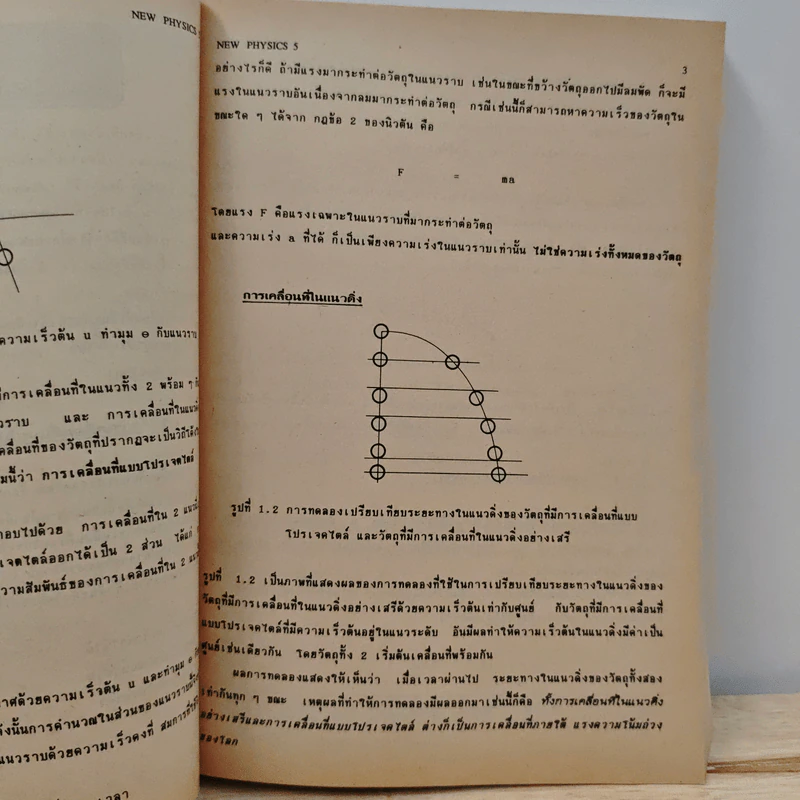 NEW PHYSICS
ความเร็วต้น u ทำมุม θ กับแนวราบ
มีการเคลื่อนที่ในแนวทั้ง 2 พร้อม ๆ กั
วราบ และ การเคลื่อนที่ในแนวดิ่
คลื่อนที่ของวัตถุที่ปรากฏจะเป็นวิถีโค้ง
มนี้ว่า การเคลื่อนที่แบบโปรเจคไตล์
กอบไปด้วย การเคลื่อนที่ใน 2 แนวคื
เจคไตล์ออกได้เป็น 2 ส่วน ได้แก่
วามสัมพันธ์ของการเคลื่อนที่ใน 2 แนว
าศด้วยความเร็วต้น u และทำมุม θ
ังนั้นการคำนวณในส่วนของแนวราบ
แนวราบด้วยความเร็วคงที่ สมการที่
เวลา
NEW PHYSICS 5
3
อย่างไรก็ดี ถ้ามีแรงมากระทำต่อวัตถุในแนวราบ เช่นในขณะที่ขว้างวัตถุออกไปมีลมพัด ก็จะมี
แรงในแนวราบอันเนื่องจากลมมากระทำต่อวัตถุ กรณีเช่นนี้ก็สามารถหาความเร็วของวัตถุใน
ขณะใด ๆ ได้จาก กฎข้อ 2 ของนิวตัน คือ
F = ma
โดยแรง F คือแรงเฉพาะในแนวราบที่มากระทำต่อวัตถุ
และความเร่ง a ที่ได้ ก็เป็นเพียงความเร่งในแนวราบเท่านั้น ไม่ใช่ความเร่งทั้งหมดของวัตถุ
การเคลื่อนที่ในแนวดิ่ง
รูปที่ 1.2 การทดลองเปรียบเทียบระยะทางในแนวดิ่งของวัตถุที่มีการเคลื่อนที่แบบ
โปรเจคไตล์ และวัตถุที่มีการเคลื่อนที่ในแนวดิ่งอย่างเสรี
รูปที่ 1.2 เป็นภาพที่แสดงผลของการทดลองที่ใช้ในการเปรียบเทียบระยะทางในแนวดิ่งของ
วัตถุที่มีการเคลื่อนที่ในแนวดิ่งอย่างเสรีด้วยความเร็วต้นเท่ากับศูนย์ กับวัตถุที่มีการเคลื่อนที่
แบบโปรเจคไตล์ที่มีความเร็วต้นอยู่ในแนวระดับ อันมีผลทำให้ความเร็วต้นในแนวดิ่งมีค่าเป็น
ศูนย์เช่นเดียวกัน โดยวัตถุทั้ง 2 เริ่มต้นเคลื่อนที่พร้อมกัน
ผลการทดลองแสดงให้เห็นว่า เมื่อเวลาผ่านไป ระยะทางในแนวดิ่งของวัตถุทั้งสอง
เท่ากันทุก ๆ ขณะ เหตุผลที่ทำให้การทดลองมีผลออกมาเช่นนี้ก็คือ ทั้งการเคลื่อนที่ในแนวดิ่ง
อย่างเสรีและการเคลื่อนที่แบบโปรเจคไตล์ ต่างก็เป็นการเคลื่อนที่ภายใต้ แรงความโน้มถ่วง
ของโลก